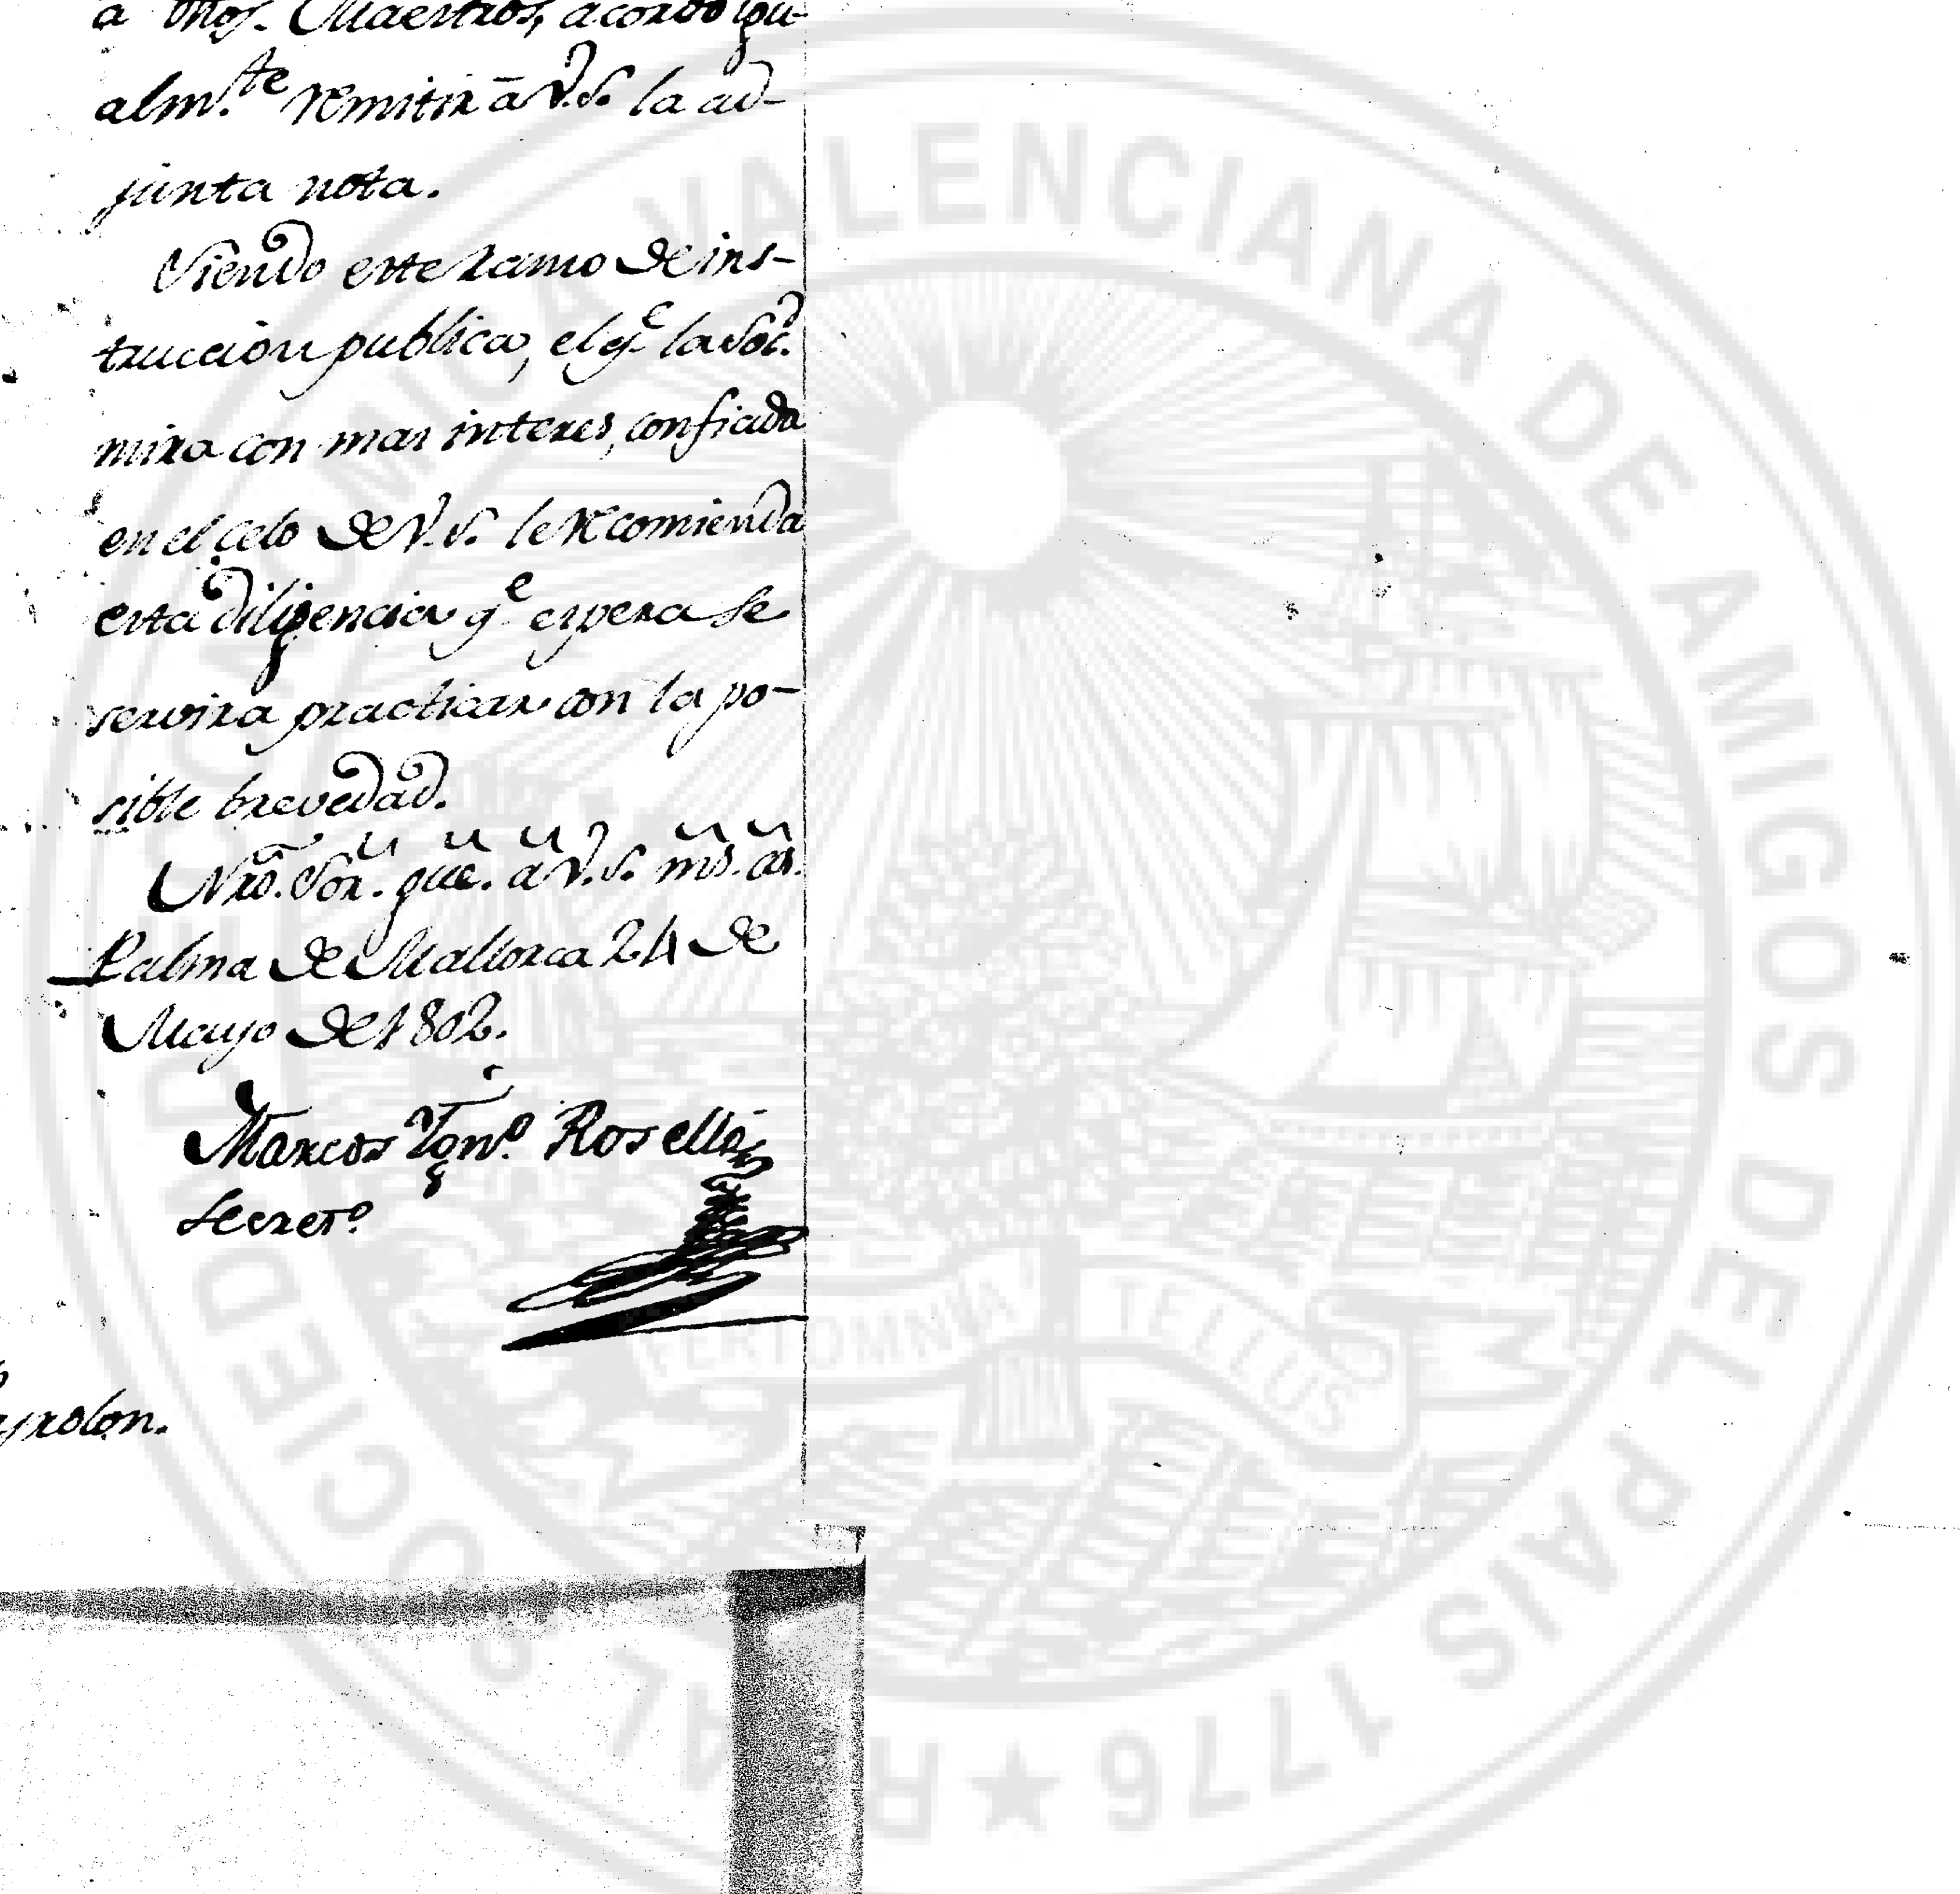 a dhos. Maestros, acordó igu-
alm.te remitir a V.S. la ad-
junta nota.
Siendo este ramo de ins-
truccion publica, el q.e la Soc.d
mira con mas interes, confiada
en el celo de V.S. le recomienda
esta diligencia q.e espera se
servira practicar con la po-
sible brevedad.
Nro. Sor. gue. a V.S. ms. as.
Palma de Mallorca 24 de
Mayo de 1802.
Marcos Ign.o Rosello
Secret.o
yrolon.
REAL SOCIEDAD ECONOMICA VALENCIANA DE AMIGOS DEL PAIS 1776